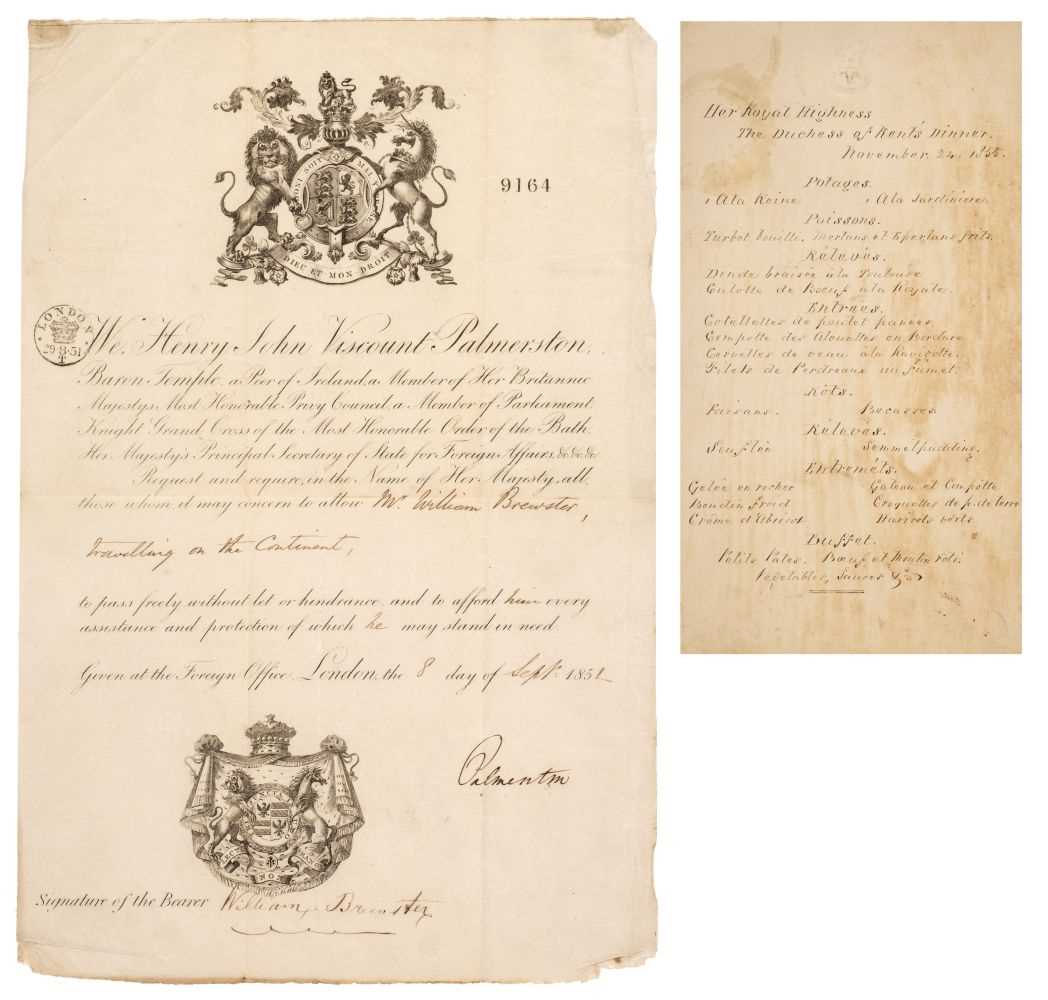 HONI SOIT QUI MAL Y PENSE
DIEU ET MON DROIT
9164
LONDON
29·8·51
We, Henry John Viscount Palmerston,
Baron Temple, a Peer of Ireland, a Member of Her Britannic
Majesty's Most Honorable Privy Council, a Member of Parliament,
Knight Grand Cross of the Most Honorable Order of the Bath,
Her Majesty's Principal Secretary of State for Foreign Affairs, &c &c &c
Request and require, in the Name of Her Majesty, all
those whom it may concern to allow Mr. William Brewster,
travelling on the Continent,
to pass freely without let or hindrance, and to afford him every
assistance and protection of which he may stand in need
Given at the Foreign Office, London, the 8 day of Septr. 1851
Palmerston
Signature of the Bearer William Brewster
Her Royal Highness
The Duchess of Kent's Dinner.
November 24. 185
Potages.
A la Reine A la Jardiniere
Poissons.
Turbot bouilli. Merlans et Eperlans frits.
Rélevés.
Dinde braisée à la Toulouse
Culotte de Bœuf à la Royale.
Entrees.
Cotellettes de poulet panees.
Compotte des Alouettes en Bordure
Cervelles de veau à la Ravigotte.
Filets de Perdreaux au fumet.
Rôts.
Faisans. Becasses
Rélevés.
Soufflée Semmelpudding.
Entremêts.
Gelée en rocher Gateau et Compôtte
Boudin froid Croquettes de p. de terre
Crême d'Abricot Haricots verts
Buffet.
Petits Pates. Bœuf et Mouton roti.
Vegetables, Sauces &c